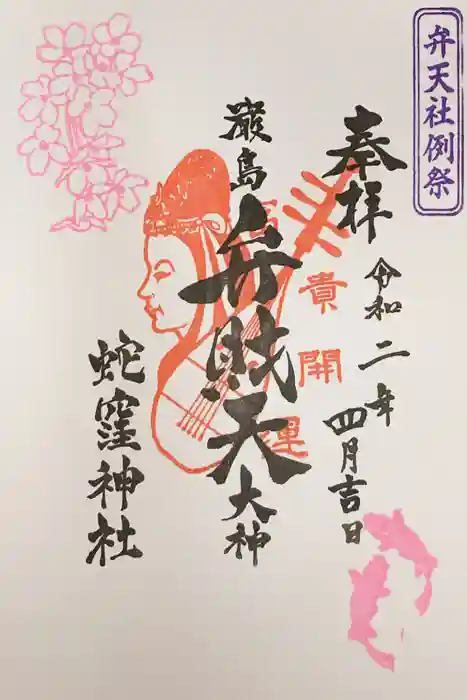 弁天社例祭
奉拝
令和二年
四月吉日
富貴開運
巌島
弁財天
大神
蛇窪神社